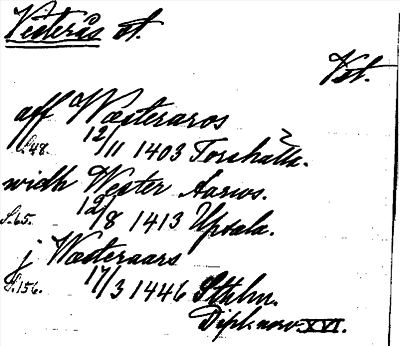 Västerås st.
Vst.
aff Wæsteraros
S.48. 12/11 1403 Torshälla.
widh Wester Aarws.
S.65. 12/8 1413 Upsala.
j Wæsteraars
S.156. 17/3 1446 Sthlm.
Dipl. norv. XVI.